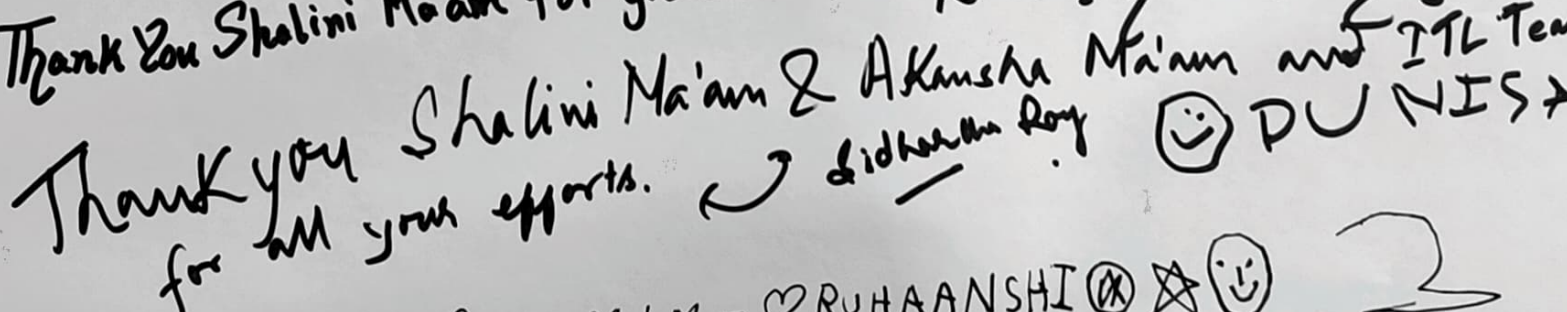 Thank You Shalini Ma'am for
Thank you Shalini Ma'am & Akansha Ma'am and ITL Tea
for all your efforts.
Sidhartha Roy
DUNISX
RUHAANSHI